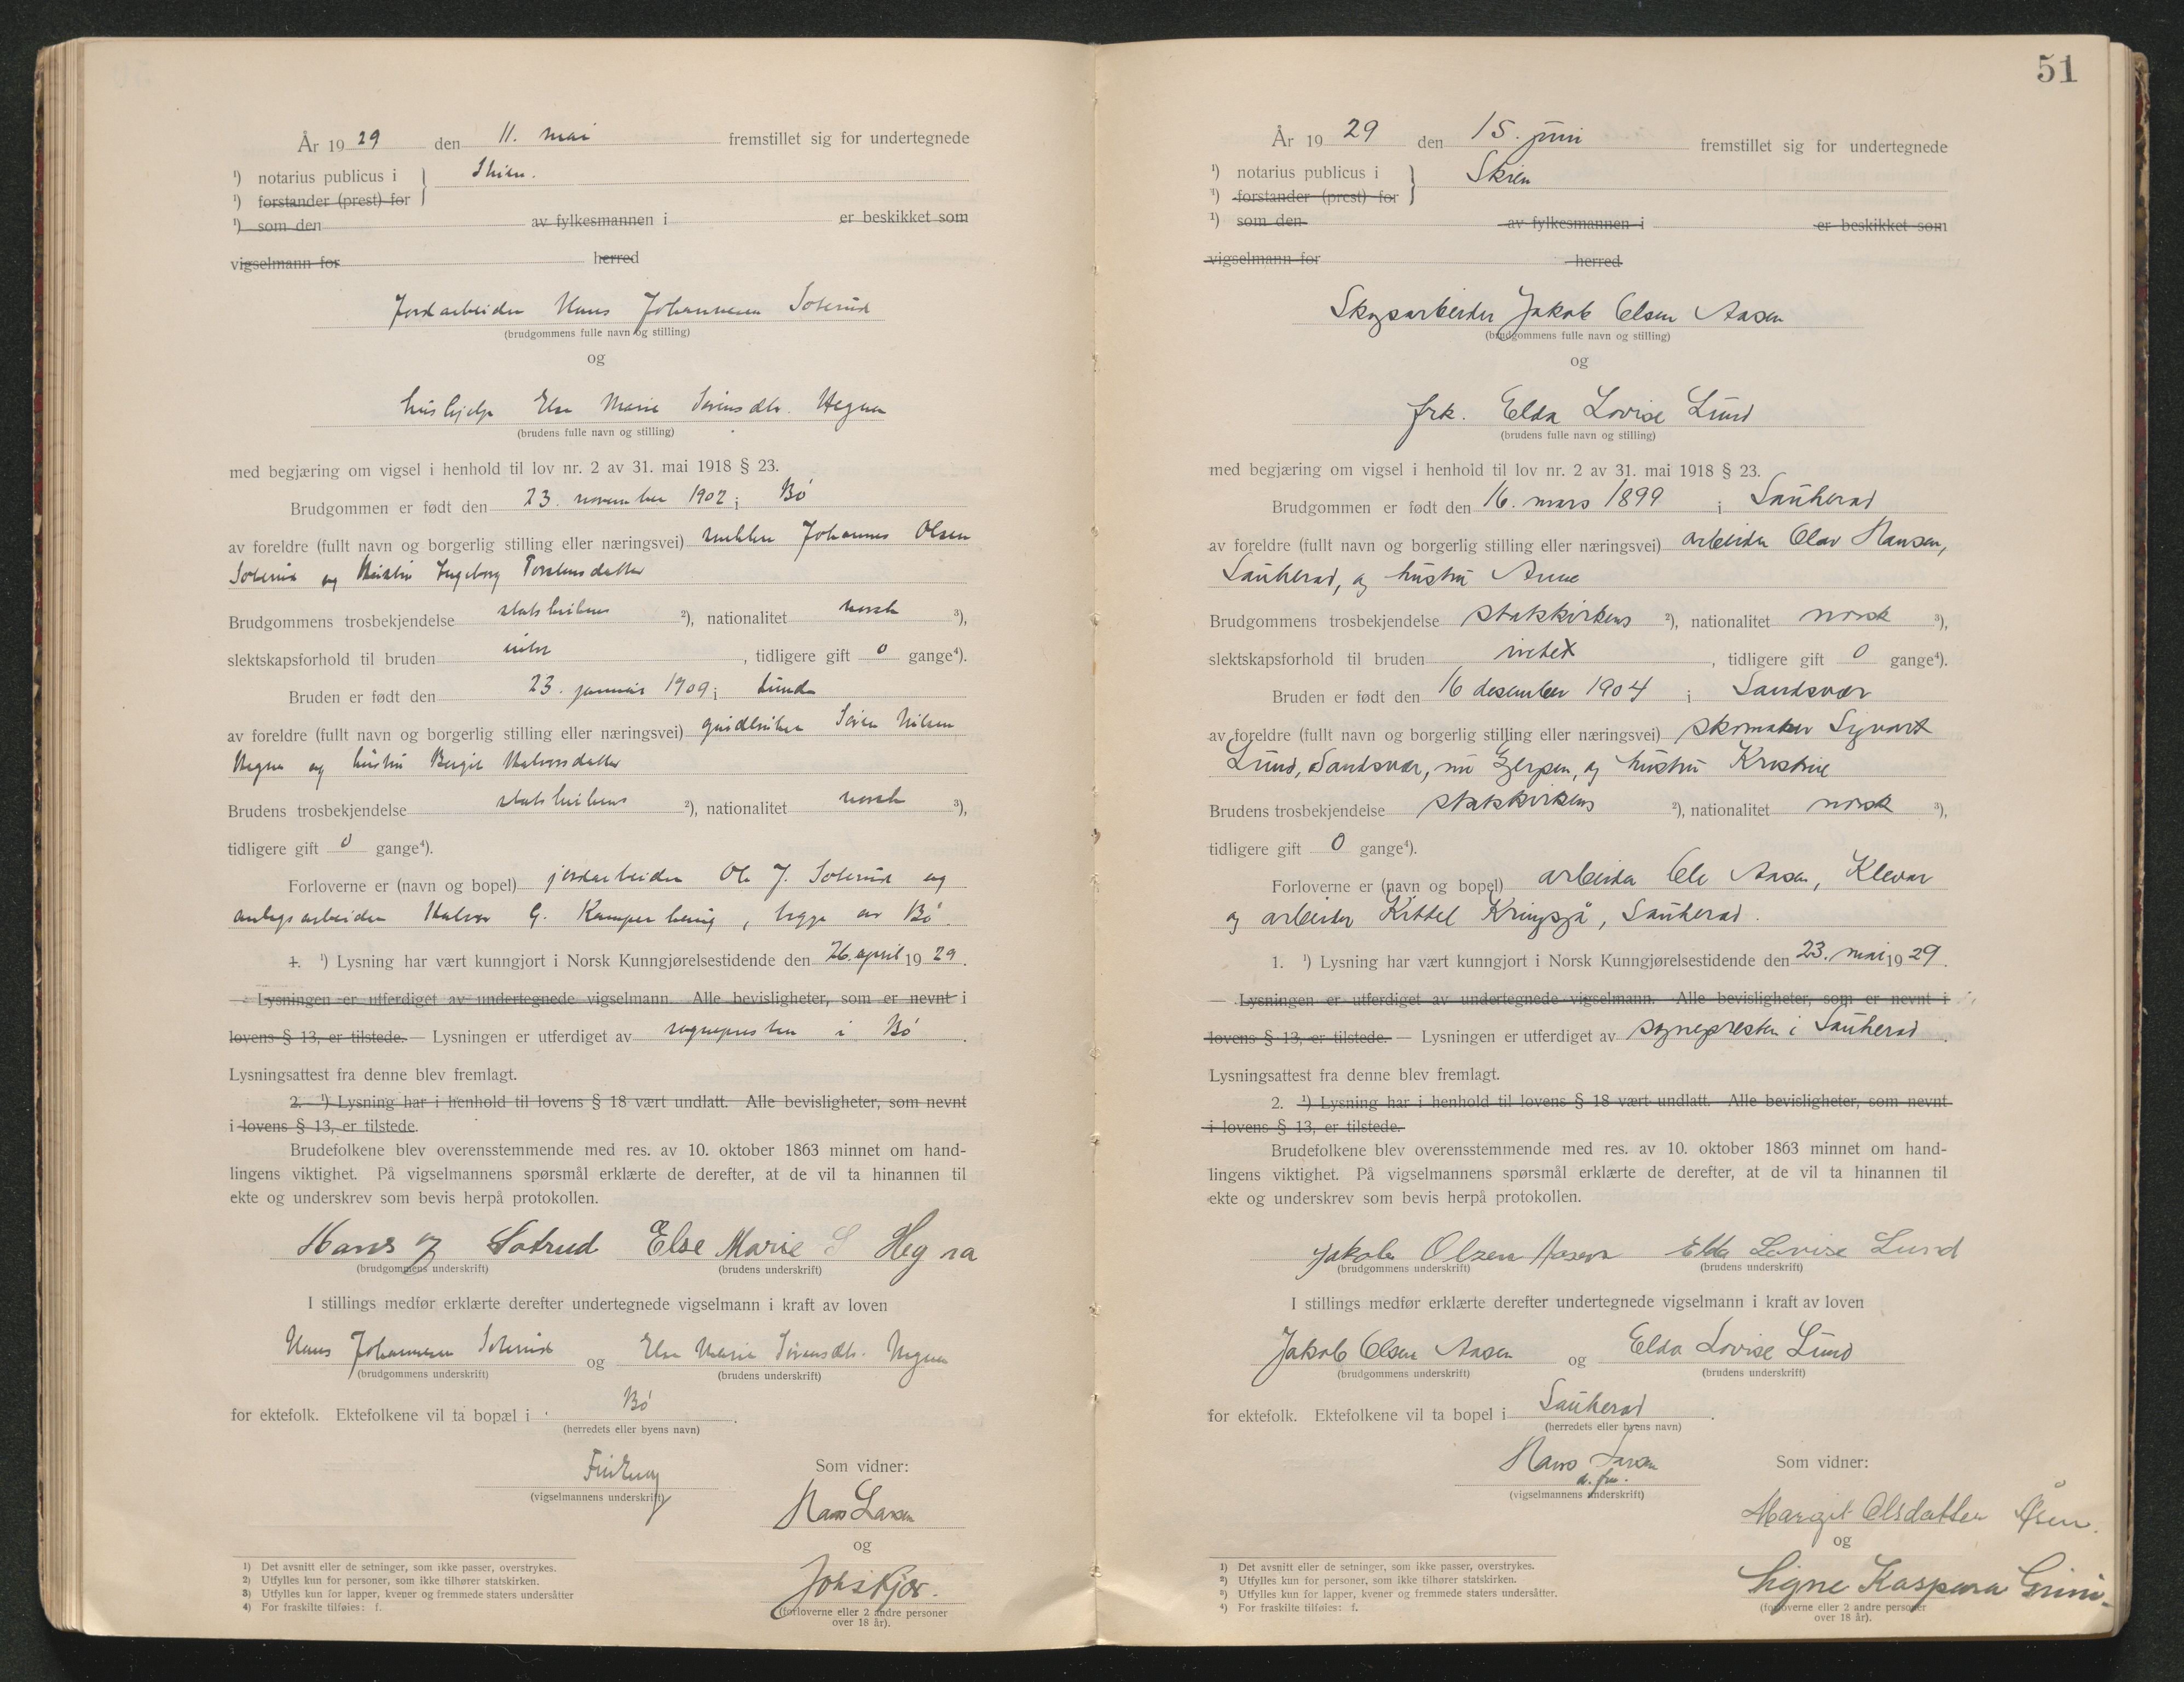 År 1929 den 11. mai fremstillet sig for undertegnede
¹) notarius publicus i } Skien.
¹) forstander (prest) for
¹) som den av fylkesmannen i er beskikket som
vigselmann for herred
Jordarbeider Hans Johannesen Soterud
(brudgommens fulle navn og stilling)
og
hushjelp Else Marie Sørensdtr. Hegna
(brudens fulle navn og stilling)
med begjæring om vigsel i henhold til lov nr. 2 av 31. mai 1918 § 23.
Brudgommen er født den 23. november 1902 i Bø
av foreldre (fullt navn og borgerlig stilling eller næringsvei) Johannes Olsen
Soterud og hustru Ingeborg Torstensdatter
Brudgommens trosbekjendelse statskirkens ²), nationalitet norsk ³),
slektskapsforhold til bruden intet, tidligere gift 0 gange⁴).
Bruden er født den 23. januar 1909 i Lunde
av foreldre (fullt navn og borgerlig stilling eller næringsvei) gårdbruker Søren Nilsen
Hegna og hustru Bergit Halvorsdatter
Brudens trosbekjendelse statskirkens ²), nationalitet norsk ³),
tidligere gift 0 gange⁴).
Forloverne er (navn og bopel) jordarbeider Ole J. Soterud og
anlegsarbeider Halvor G. , begge av Bø.
1. ¹) Lysning har vært kunngjort i Norsk Kunngjørelsestidende den 26. april 1929.
— Lysningen er utferdiget av undertegnede vigselmann. Alle bevisligheter, som er nevnt i
lovens § 13, er tilstede. — Lysningen er utferdiget av sognepresten i Bø.
Lysningsattest fra denne blev fremlagt.
2. ¹) Lysning har i henhold til lovens § 18 vært undlatt. Alle bevisligheter, som nevnt
i lovens § 13, er tilstede.
Brudefolkene blev overensstemmende med res. av 10. oktober 1863 minnet om hand-
lingens viktighet. På vigselmannens spørsmål erklærte de derefter, at de vil ta hinannen til
ekte og underskrev som bevis herpå protokollen.
Hans J Sotrud Else Marie S Hegna
(brudgommens underskrift) (brudens underskrift)
I stillings medfør erklærte derefter undertegnede vigselmann i kraft av loven
Hans Johannesen Soterud og Else Marie Sørensdtr. Hegna
(brudgommens underskrift) (brudens underskrift)
for ektefolk. Ektefolkene vil ta bopæl i Bø.
(herredets eller byens navn)
Som vidner:
(vigselmannens underskrift)
Hans Larsen
og
Johs Kjær.
(forloverne eller 2 andre personer
over 18 år).
1) Det avsnitt eller de setninger, som ikke passer, overstrykes.
2) Utfylles kun for personer, som ikke tilhører statskirken.
3) Utfylles kun for lapper, kvener og fremmede staters undersåtter
4) For fraskilte tilføies: f.
51
År 1929 den 15. juni fremstillet sig for undertegnede
¹) notarius publicus i } Skien
¹) forstander (prest) for
¹) som den av fylkesmannen i er beskikket som
vigselmann for herred
Skogsarbeider Jakob Olsen Aasen
(brudgommens fulle navn og stilling)
og
frk. Elda Lovise Lund
(brudens fulle navn og stilling)
med begjæring om vigsel i henhold til lov nr. 2 av 31. mai 1918 § 23.
Brudgommen er født den 16. mars 1899 i Sauherad
av foreldre (fullt navn og borgerlig stilling eller næringsvei) arbeider Olav Hansen,
Sauherad, og hustru Anne
Brudgommens trosbekjendelse statskirkens ²), nationalitet norsk ³),
slektskapsforhold til bruden intet, tidligere gift 0 gange⁴).
Bruden er født den 16 desember 1904 i Sandsvær
av foreldre (fullt navn og borgerlig stilling eller næringsvei) skomaker Sigvart
Lund, Sandsvær, nu Gjerpen, og hustru Kristine
Brudens trosbekjendelse statskirkens ²), nationalitet norsk ³),
tidligere gift 0 gange⁴).
Forloverne er (navn og bopel) arbeider Ole Aasen, Klevar
og arbeider Kittel Kringsjå, Sauherad.
1. ¹) Lysning har vært kunngjort i Norsk Kunngjørelsestidende den 23. mai 1929.
— Lysningen er utferdiget av undertegnede vigselmann. Alle bevisligheter, som er nevnt i
lovens § 13, er tilstede. — Lysningen er utferdiget av sognepresten i Sauherad.
Lysningsattest fra denne blev fremlagt.
2. ¹) Lysning har i henhold til lovens § 18 vært undlatt. Alle bevisligheter, som nevnt
i lovens § 13, er tilstede.
Brudefolkene blev overensstemmende med res. av 10. oktober 1863 minnet om hand-
lingens viktighet. På vigselmannens spørsmål erklærte de derefter, at de vil ta hinannen til
ekte og underskrev som bevis herpå protokollen.
Jakob Olsen Aasen Elda Lovise Lund
(brudgommens underskrift) (brudens underskrift)
I stillings medfør erklærte derefter undertegnede vigselmann i kraft av loven
Jakob Olsen Aasen og Elda Lovise Lund
(brudgommens underskrift) (brudens underskrift)
for ektefolk. Ektefolkene vil ta bopel i Sauherad.
(herredets eller byens navn)
Hans Larsen
Som vidner:
(vigselmannens underskrift)
Margit Olsdatter Åsen.
og
Signe Kaspara Grini.
(forloverne eller 2 andre personer
over 18 år).
1) Det avsnitt eller de setninger, som ikke passer, overstrykes.
²) Utfylles kun for personer, som ikke tilhører statskirken.
³) Utfylles kun for lapper, kvener og fremmede staters undersåtter.
⁴) For fraskilte tilføies: f.